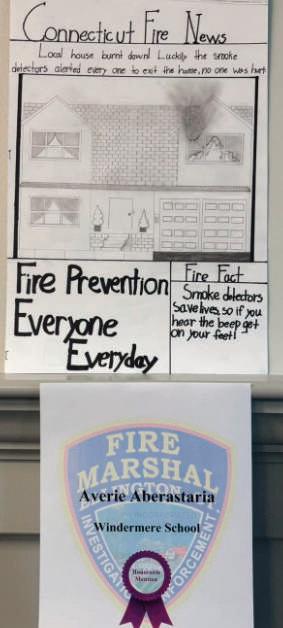 Connecticut Fire News
Local house burnt down! Luckily the smoke
detectors alerted every one to exit the home, no one was hurt
Fire Prevention
Everyone
Everyday
Fire Fact
Smoke detectors
save lives, so if you
hear the beep get
on your feet!
FIRE
MARSHAL
LINGTON
Averie Aberastaria
Windermere School
Honorable
Mention